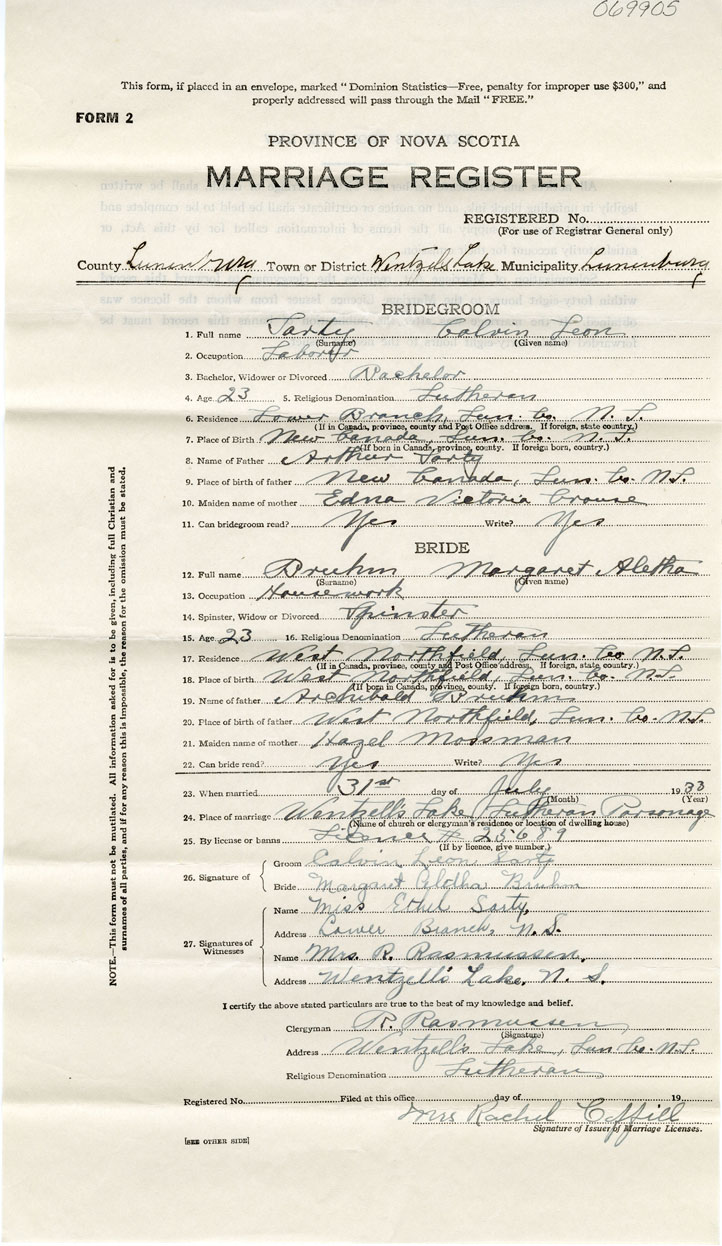 069905
This form, if placed in an envelope, marked "Dominion Statistics—Free, penalty for improper use $300," and
properly addressed will pass through the Mail "FREE."
FORM 2
PROVINCE OF NOVA SCOTIA
MARRIAGE REGISTER
REGISTERED No.
(For use of Registrar General only)
County Lunenburg Town or District Wentzells Lake Municipality Lunenburg
BRIDEGROOM
1. Full name Sarty Calvin Leon
(Surname) (Given name)
2. Occupation Laborer
3. Bachelor, Widower or Divorced Bachelor
4. Age 23 5. Religious Denomination Lutheran
6. Residence Lower Branch, Lun. Co. N. S.
(If in Canada, province, county and Post Office address. If foreign, state country.)
7. Place of Birth New Canada, Lun. Co. N. S.
(If born in Canada, province, county. If foreign born, country.)
8. Name of Father Arthur Sarty
9. Place of birth of father New Canada, Lun. Co. N.S.
10. Maiden name of mother Edna Victoria Crouse
11. Can bridegroom read? Yes Write? Yes
BRIDE
12. Full name Bruhm Margaret Aletha
(Surname) (Given name)
13. Occupation Housework
14. Spinster, Widow or Divorced Spinster
15. Age 23 16. Religious Denomination Lutheran
17. Residence West Northfield, Lun. Co N.S.
(If in Canada, province, county and Post Office address. If foreign, state country.)
18. Place of birth West Northfield, Lun. Co. N.S.
(If born in Canada, province, county. If foreign born, country.)
19. Name of father Archibald Bruhm
20. Place of birth of father West Northfield, Lun. Co. N.S.
21. Maiden name of mother Hazel Mossman
22. Can bride read? Yes Write? Yes
23. When married 31st day of July 19
(Month) (Year)
24. Place of marriage Wentzell's Lake, Lutheran Parsonage
(Name of church or clergyman's residence or location of dwelling house)
25. By license or banns License # 25689
(If by licence, give number.)
26. Signature of
Groom Calvin Leon Sarty
Bride Margaret Bruhm
27. Signatures of Witnesses
Name Miss Ethel Sarty,
Address Lower Branch, N. S.
Name Mrs. R. Rasmussen,
Address Wentzell's Lake, N. S.
I certify the above stated particulars are true to the best of my knowledge and belief.
Clergyman R. Rasmussen,
(Signature)
Address Wentzell's Lake, Lun Co. N.S.
Religious Denomination Lutheran
Registered No. Filed at this office day of 19
Mrs Rachel
Signature of Issuer of Marriage Licenses.
[SEE OTHER SIDE]
NOTE.—This form must not be mutilated. All information asked for is to be given, including full Christian and
surnames of all parties, and if for any reason this is impossible, the reason for the omission must be stated.